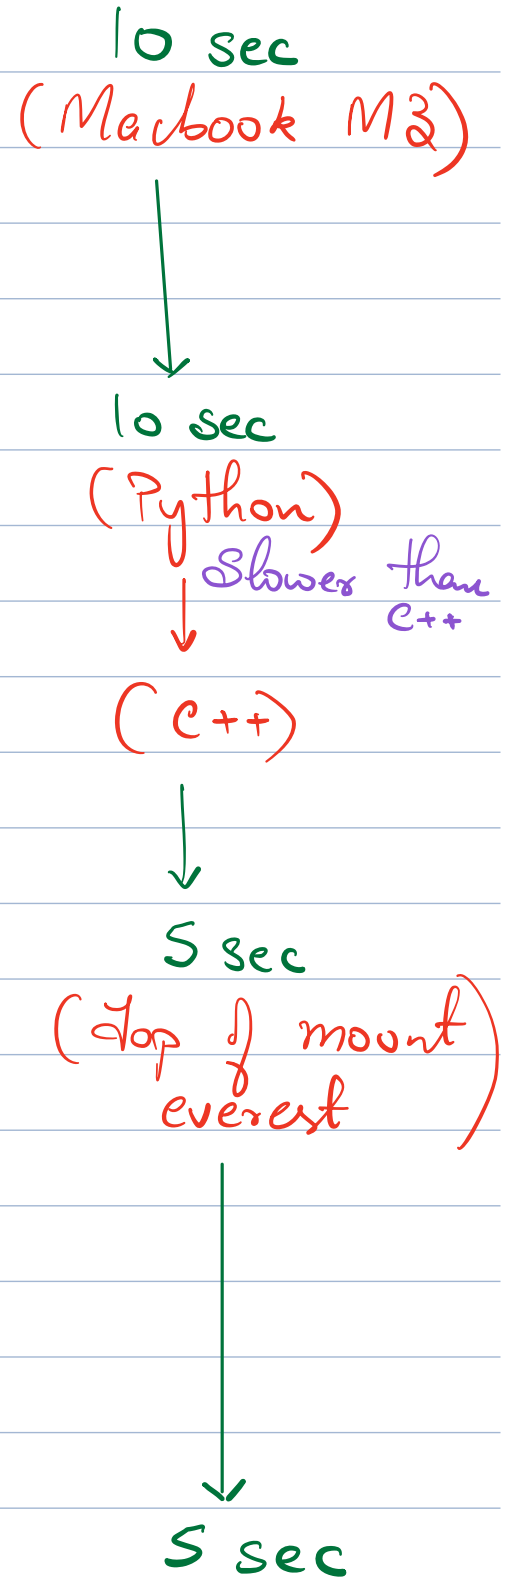 10 sec
(Macbook M3)
10 sec
(Python)
Slower than
C++
(C++)
5 sec
(Top of mount
everest)
5 sec